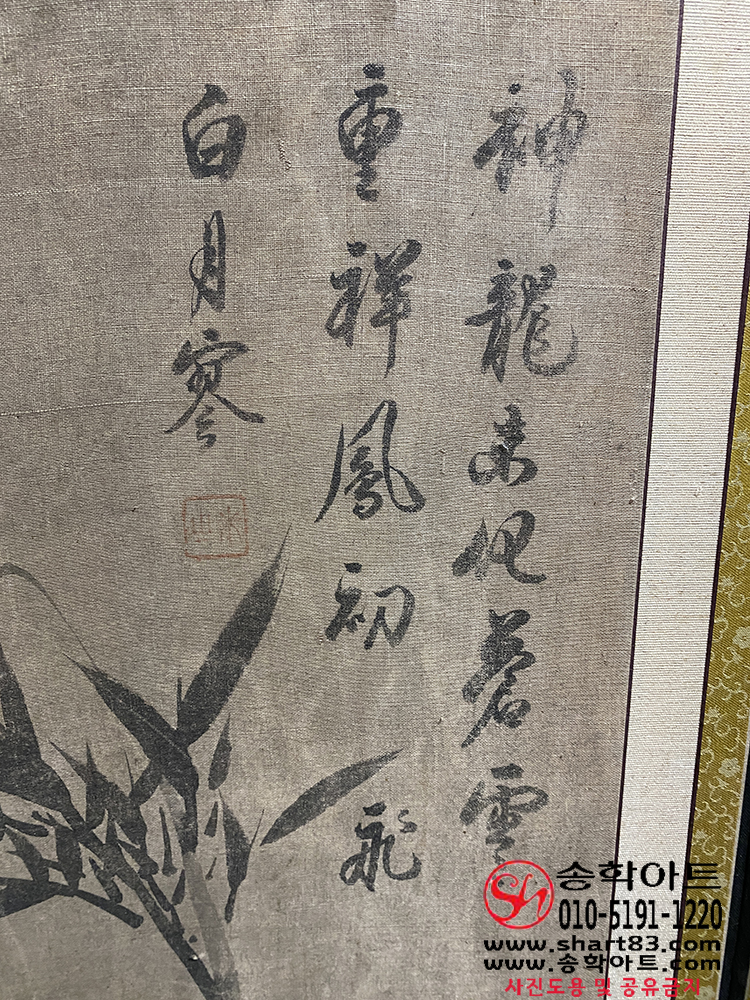 神龍未化蒼雲
重祥鳳初飛
白月寒
송학아트
010-5191-1220
www.shart83.com
www.송학아트.com
사진도용 및 공유금지